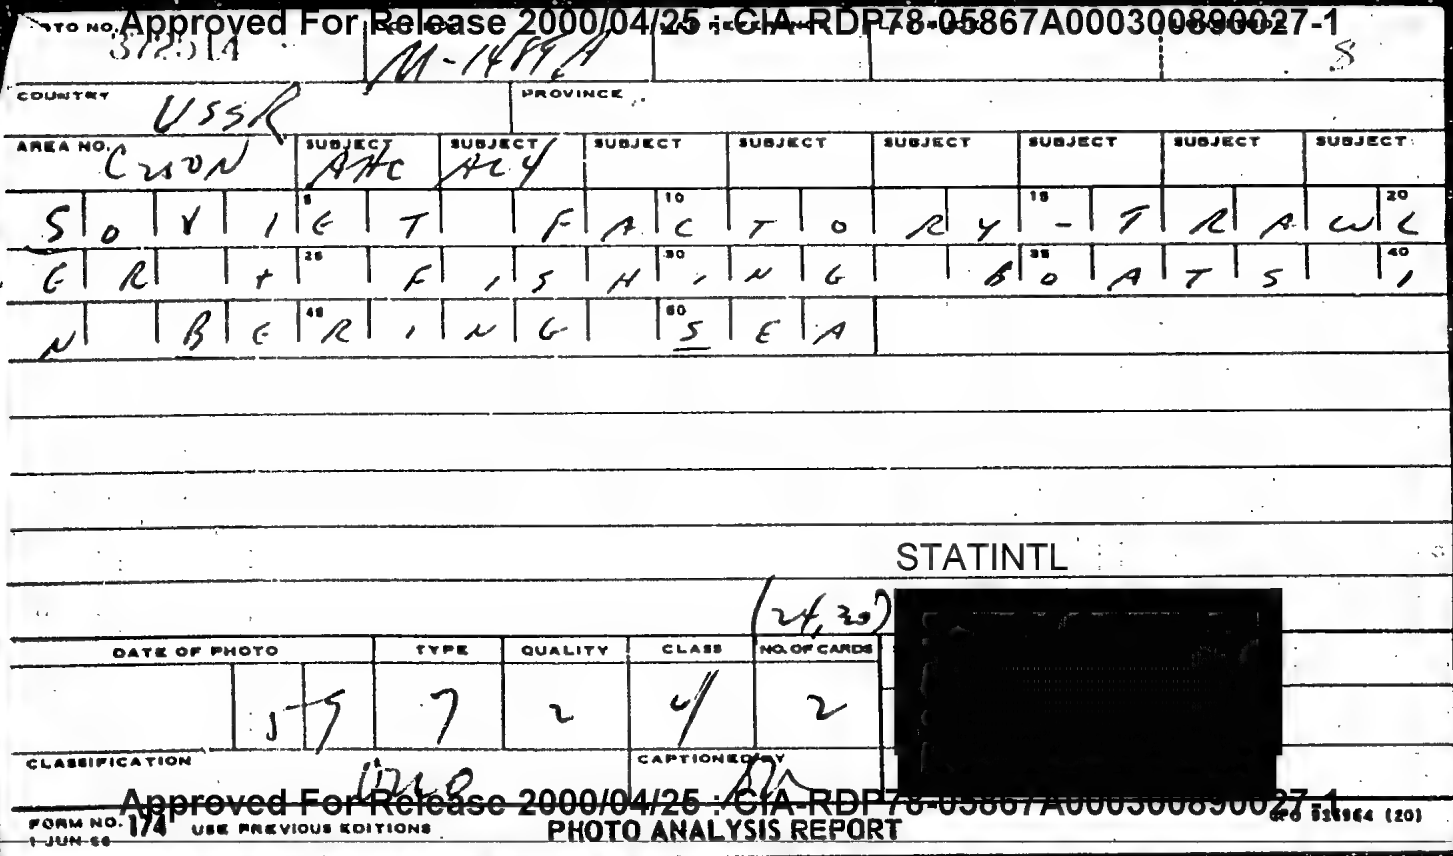 Approved For Release 2000/04/25 : CIA-RDP78-05867A000300890027-1
PHOTO NO. 372514 M-1489A 8
COUNTRY USSR PROVINCE
AREA NO. SUBJECT AHC SUBJECT AC4 SUBJECT SUBJECT SUBJECT SUBJECT SUBJECT SUBJECT
5 10 15 20
SOVIET FACTORY-TRAWL
25 30 35 40
ER + FISHING BOATS I
45 50
N BERING SEA
STATINTL
(24,30)
DATE OF PHOTO TYPE QUALITY CLASS NO. OF CARDS
59 7 2 4 2
CLASSIFICATION CAPTIONED BY
Approved For Release 2000/04/25 : CIA-RDP78-05867A000300890027-1
FORM NO. 174 USE PREVIOUS EDITIONS PHOTO ANALYSIS REPORT GPO (20)
1 JUN